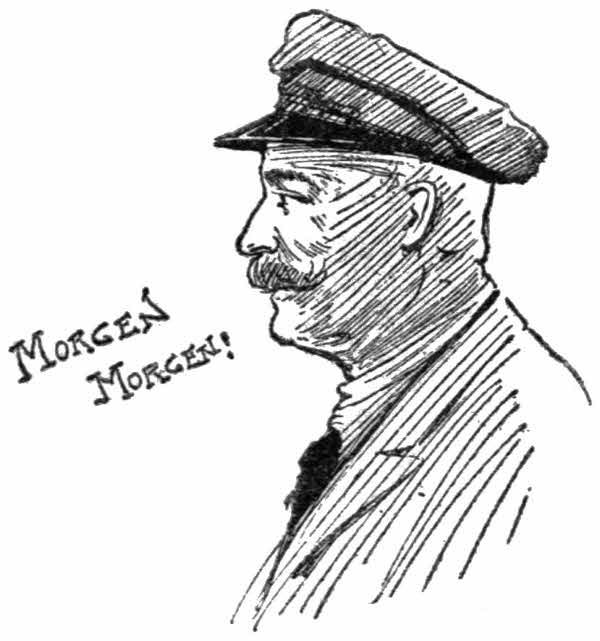 MORGEN
MORGEN!